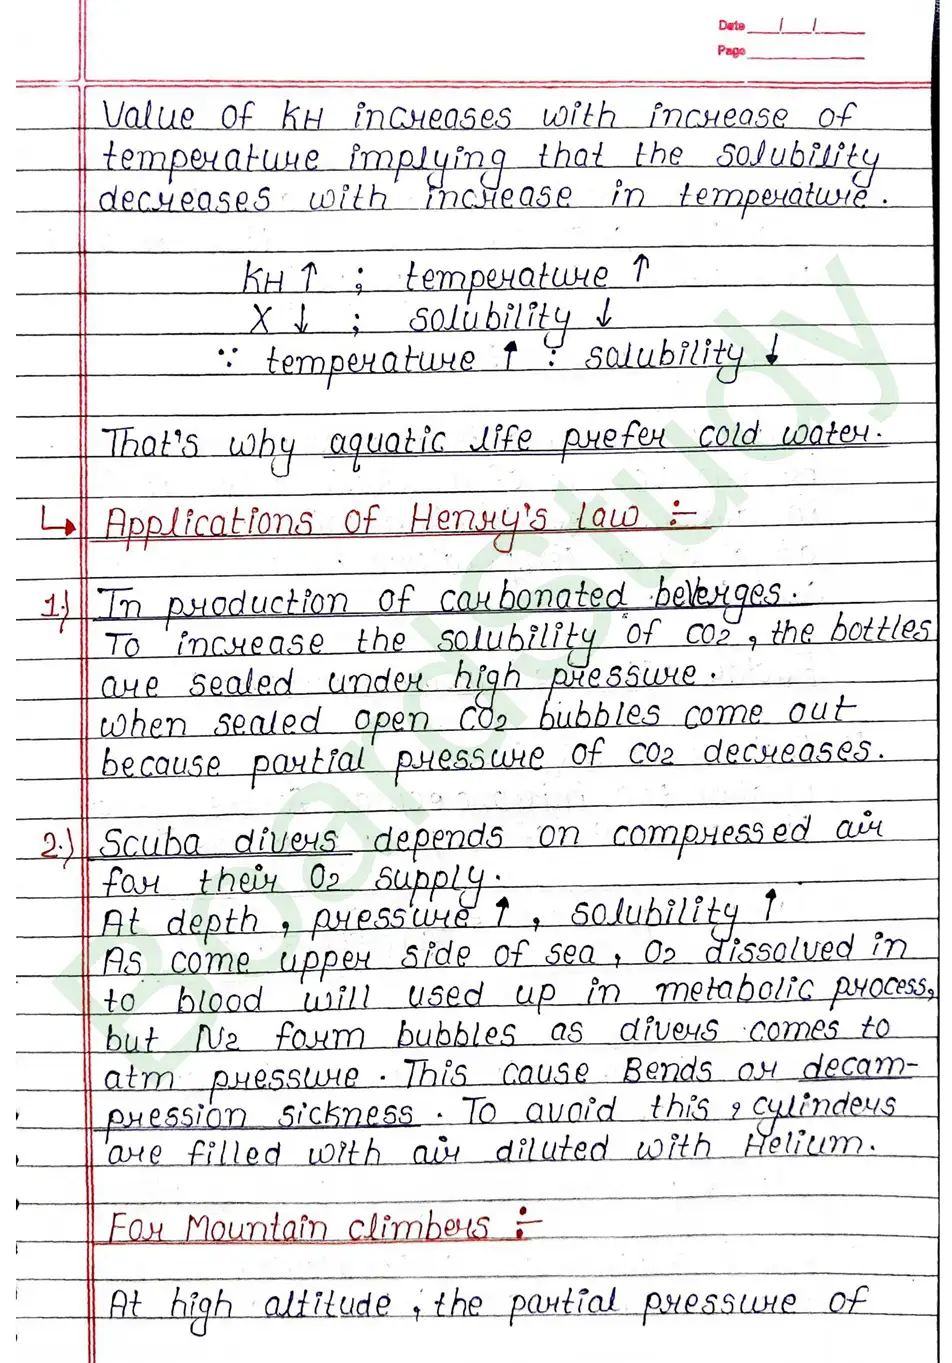 Date / /
Page
Value of KH increases with increase of
temperature implying that the solubility
decreases with increase in temperature.
KH ↑ ; temperature ↑
X ↓ ; solubility ↓
∵ temperature ↑ : solubility ↓
That's why aquatic life prefer cold water.
↳ Applications of Henry's law :-
1.) In production of carbonated beverges.
To increase the solubility of CO2, the bottles
are sealed under high pressure.
when sealed open CO2 bubbles come out
because partial pressure of CO2 decreases.
2.) Scuba divers depends on compressed air
for their O2 supply.
At depth, pressure ↑, solubility ↑
As come upper side of sea, O2 dissolved in
to blood will used up in metabolic process,
but N2 form bubbles as divers comes to
atm pressure. This cause Bends or decom-
pression sickness. To avoid this, cylinders
are filled with air diluted with Helium.
For Mountain climbers :-
At high altitude, the partial pressure of
BoardStudy